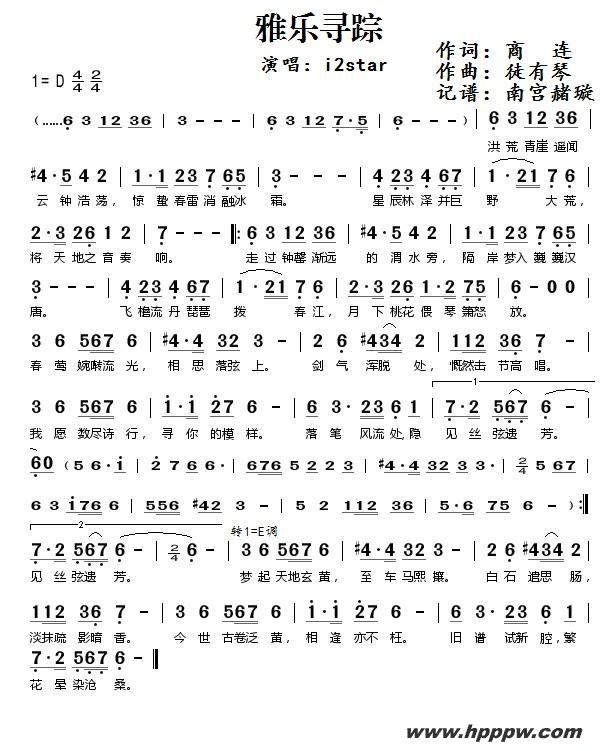 雅乐寻踪
演唱：i2star
作词：商 连
作曲：徒有琴
记谱：南宫赭璇
1=D 4/4 2/4
(……6 3 12 36 | 3 - - - | 6 3 12 7·5 | 6 - - - ) | 6 3 12 36 |
洪荒青崖遥闻
#4·5 4 2 | 1·1 23 7 65 | 3 - - - | 4 23 4 67 | 1·21 7 6 |
云钟浩荡，惊蛰春雷消融冰霜。星辰林泽并巨野大荒，
2·3 26 1 2 | 7 - - - |: 6 3 12 36 | #4·5 4 2 | 1·1 23 7 65 |
将天地之音奏响。走过钟罄渐远的渭水旁，隔岸梦入巍巍汉
3 - - - | 4 23 4 67 | 1·21 7 6 | 2·3 1·2 75 | 6 - 0 0 |
唐。飞檐流丹琵琶拨春江，月下桃花偎琴箫怒放。
3 6 567 6 | #4·4 32 3 - | 6 #434 2 | 112 36 7 - |
春莺婉啭流光，相思落弦上。剑气浑脱处，慨然击节高唱。
1
3 6 567 6 | i·i 27 6 - | 6 3 23 61 | 7·2 567 6 - |
我愿数尽诗行，寻你的模样。落笔风流处，隐见丝弦遗芳。
60 (5 6·i | 2 766 6· | 676 5223 | #4·4 323 - | 2/4 567 5 |
6 3 i76 6 | 556 #42 3 - | 5 2 112 36 | 5·6 75 6 - ) :|
2
转1=E调
7·2 567 6 - | 2/4 6 - | 3 6 567 6 | #4·4 32 3 - | 6 #434 2 |
见丝弦遗芳。梦起天地玄黄，至车马熙攘。白石遣思肠，
112 36 7 - | 3 6 567 6 | i·i 27 6 - | 6 3 23 61 |
淡抹疏影暗香。今世古卷泛黄，相逢亦不枉。旧谱试新腔，繁
7·2 567 6 - ||
花晕染沧桑。
www.hpppw.com